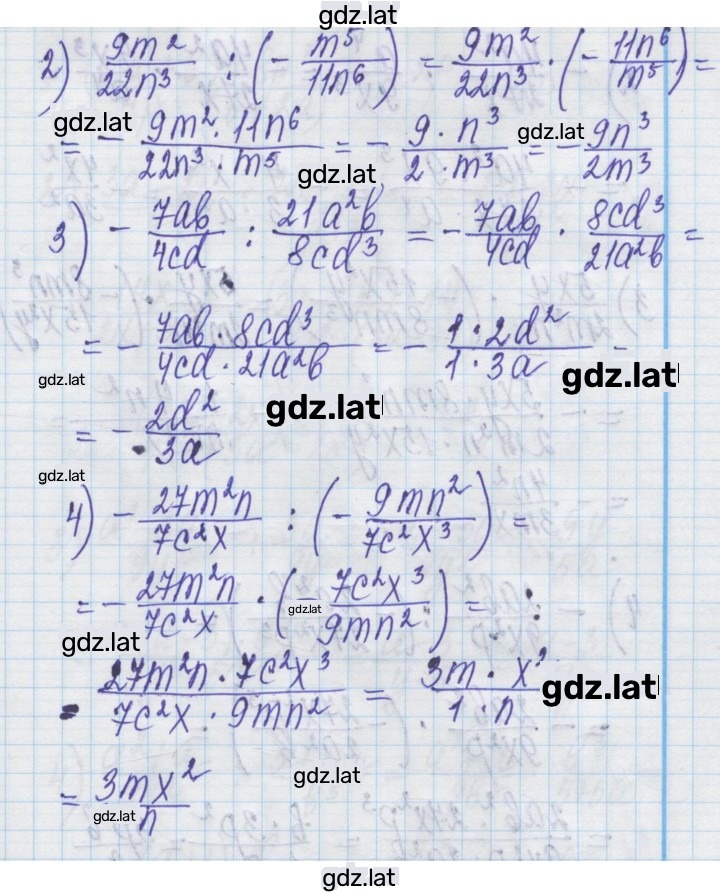 gdz.lat
2) 9m²/22n³ : (- m⁵/11n⁶) = 9m²/22n³ · (- 11n⁶/m⁵) =
gdz.lat
= - 9m² · 11n⁶/22n³ · m⁵ = - 9 · n³/2 · m³ = - 9n³/2m³
gdz.lat
gdz.lat
3) - 7ab/4cd : 21a²b/8cd³ = - 7ab/4cd · 8cd³/21a²b =
= - 7ab · 8cd³/4cd · 21a²b = - 1 · 2d²/1 · 3a =
gdz.lat
gdz.lat
gdz.lat
= - 2d²/3a
gdz.lat
4) - 27m²n/7c²x : (- 9mn²/7c²x³) =
= - 27m²n/7c²x · (- 7c²x³/9mn²) =
gdz.lat
gdz.lat
= 27m²n · 7c²x³/7c²x · 9mn² = 3m · x²/1 · n
gdz.lat
gdz.lat
= 3mx²/n
gdz.lat
gdz.lat